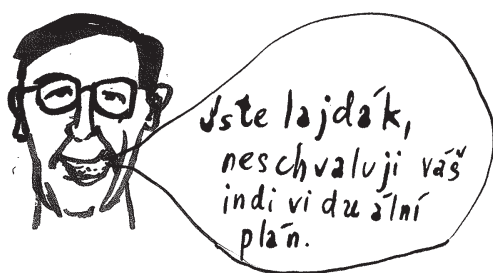 Jste lajdák,
neschvaluji váš
individuální
plán.